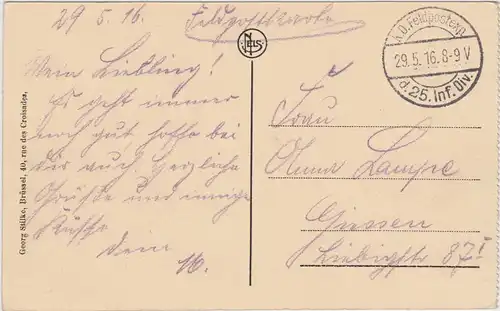 29 5. 16.
Feldpostkarte
NELS
K.D. Feldpostexp.
29.5.16.8-9V
d. 25. Inf. Div.
Mein Liebling!
Es geht immer
noch gut hoffe bei
Dir auch. Herzliche
Grüße und innige
Küsse
Dein
Georg Stilke, Brüssel, 40, rue des Croisades.
Frau
Anna Lampe
Giessen
Liebigstr 87 I